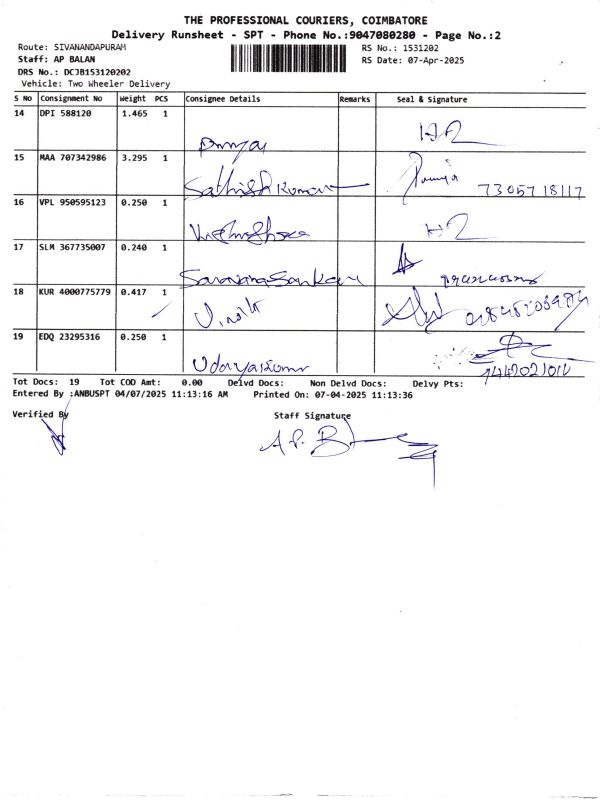 THE PROFESSIONAL COURIERS, COIMBATORE
Delivery Runsheet - SPT - Phone No.:9047080280 - Page No.:2
Route: SIVANANDAPURAM
RS No.: 1531202
Staff: AP BALAN
RS Date: 07-Apr-2025
DRS No.: DCJB153120202
Vehicle: Two Wheeler Delivery
S No Consignment No Weight PCS Consignee Details Remarks Seal & Signature
14 DPI 588120 1.465 1
15 MAA 707342986 3.295 1
Sathish Kumar 7305718117
16 VPL 950595123 0.250 1
17 SLM 367735007 0.240 1
Saravana Sankari
18 KUR 4000775779 0.417 1
19 EDQ 23295316 0.250 1
Udayakumar
Tot Docs: 19 Tot COD Amt: 0.00 Delvd Docs: Non Delvd Docs: Delvy Pts:
Entered By :ANBUSPT 04/07/2025 11:13:16 AM Printed On: 07-04-2025 11:13:36
Verified By Staff Signature
A.P. B